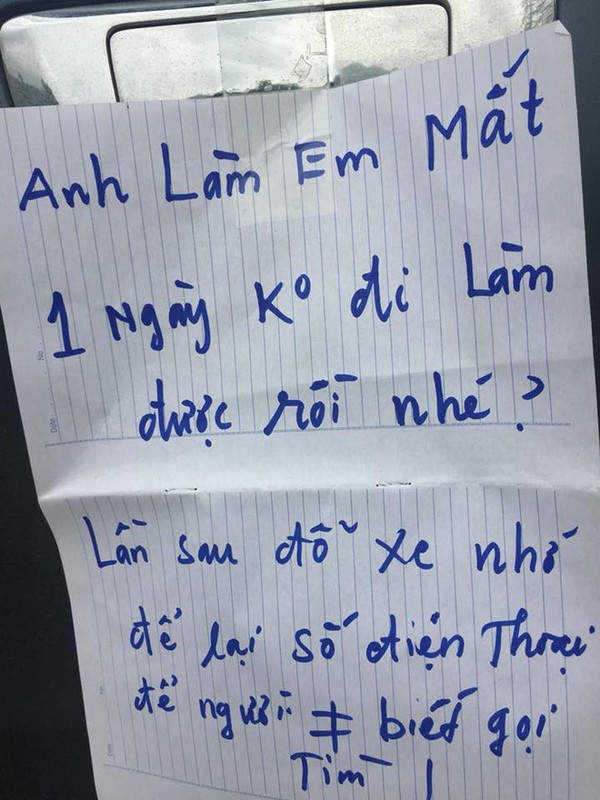 Anh Làm Em Mất
1 Ngày Ko đi Làm
được rồi nhé?
Lần sau đỗ xe nhớ
để lại số điện Thoại
để người ≠ biết gọi
Tìm !
No.
Date